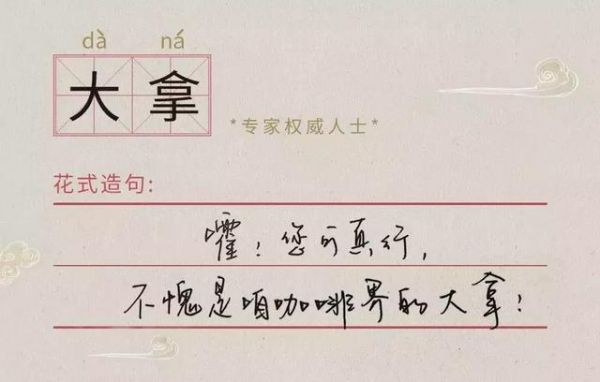 dà ná
大拿
*专家权威人士*
花式造句:
嚯！您可真行，
不愧是咱咖啡界的大拿！